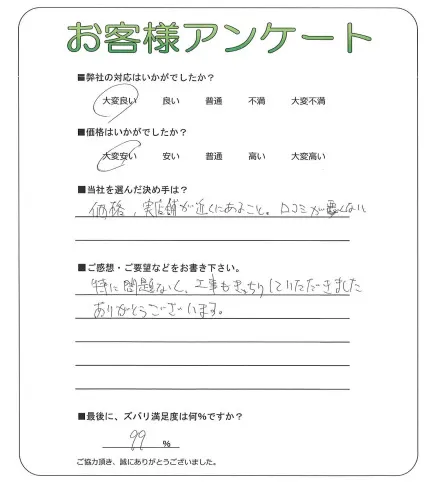 お客様アンケート
■弊社の対応はいかがでしたか？
大変良い 良い 普通 不満 大変不満
■価格はいかがでしたか？
大変安い 安い 普通 高い 大変高い
■当社を選んだ決め手は？
価格，実店舗が近くにあること。口コミが悪くない
■ご感想・ご要望などをお書き下さい。
特に問題なく、工事もきっちりしていただきました
ありがとうございます。
■最後に、ズバリ満足度は何%ですか？
99 %
ご協力頂き、誠にありがとうございました。